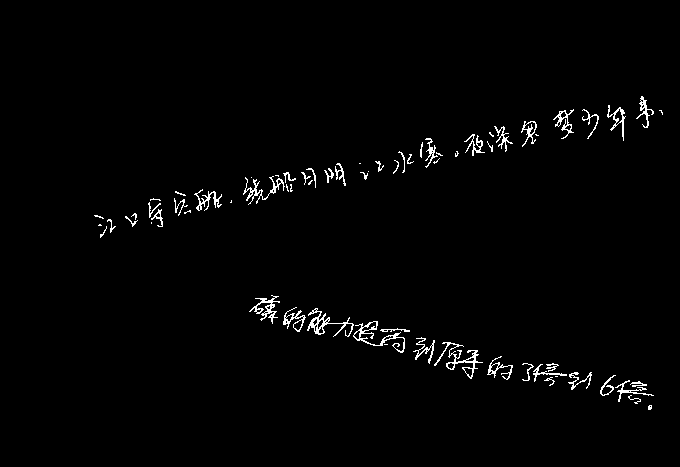 江口守空船,绕船月明江水寒。夜深忽梦少年事、
磷的能力提高到原来的3倍到6倍。